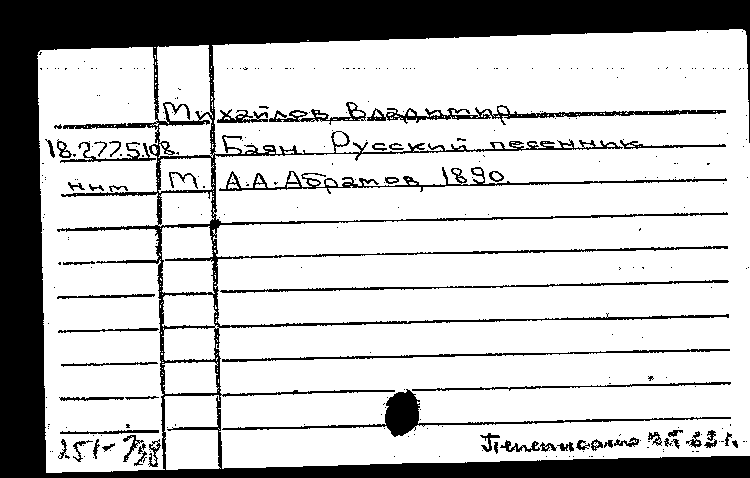 Михайлов, Владимир.
18.277.5102. Баян. Русский песенник
М. А.А. Абрамов, 1890.
251-738